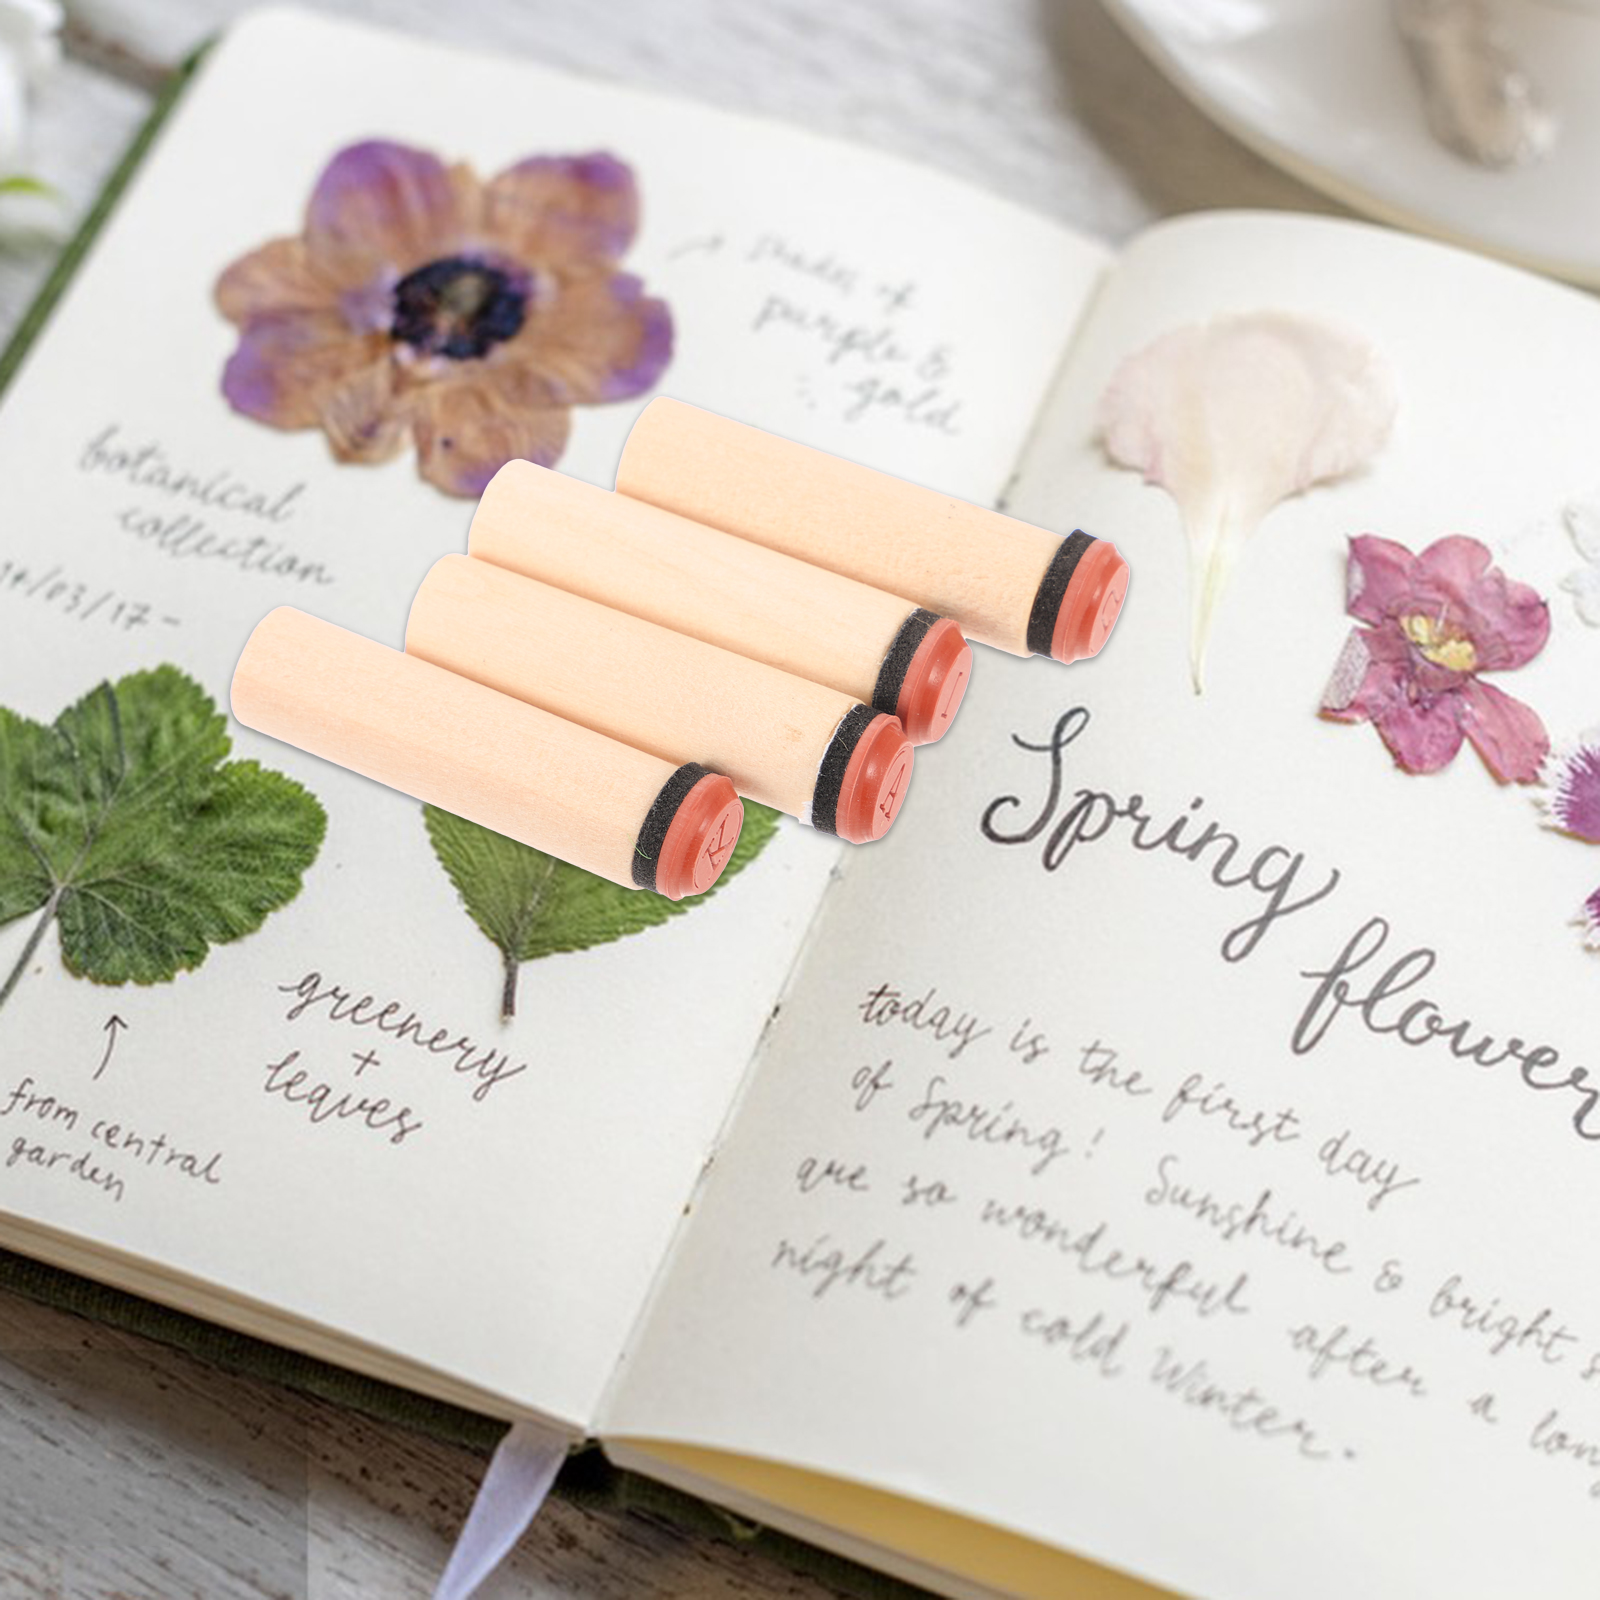 shades of
purple &
gold
botanical
collection
/03/17-
greenery
+
leaves
from central
garden
Spring
flower
today is the first day
of Spring! Sunshine & bright
are so wonderful after a long
night of cold Winter.
A